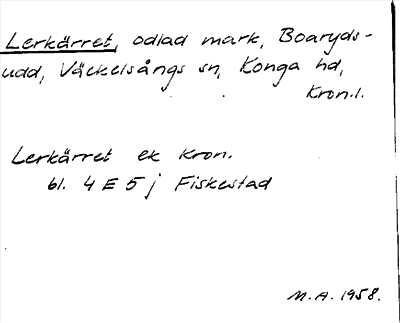 Lerkärret, odlad mark, Boaryds-
udd, Väckelsångs sn, Konga hd,
Kron.l.
Lerkärret ek Kron.
bl. 4 E 5 j Fiskestad
M.A. 1958.